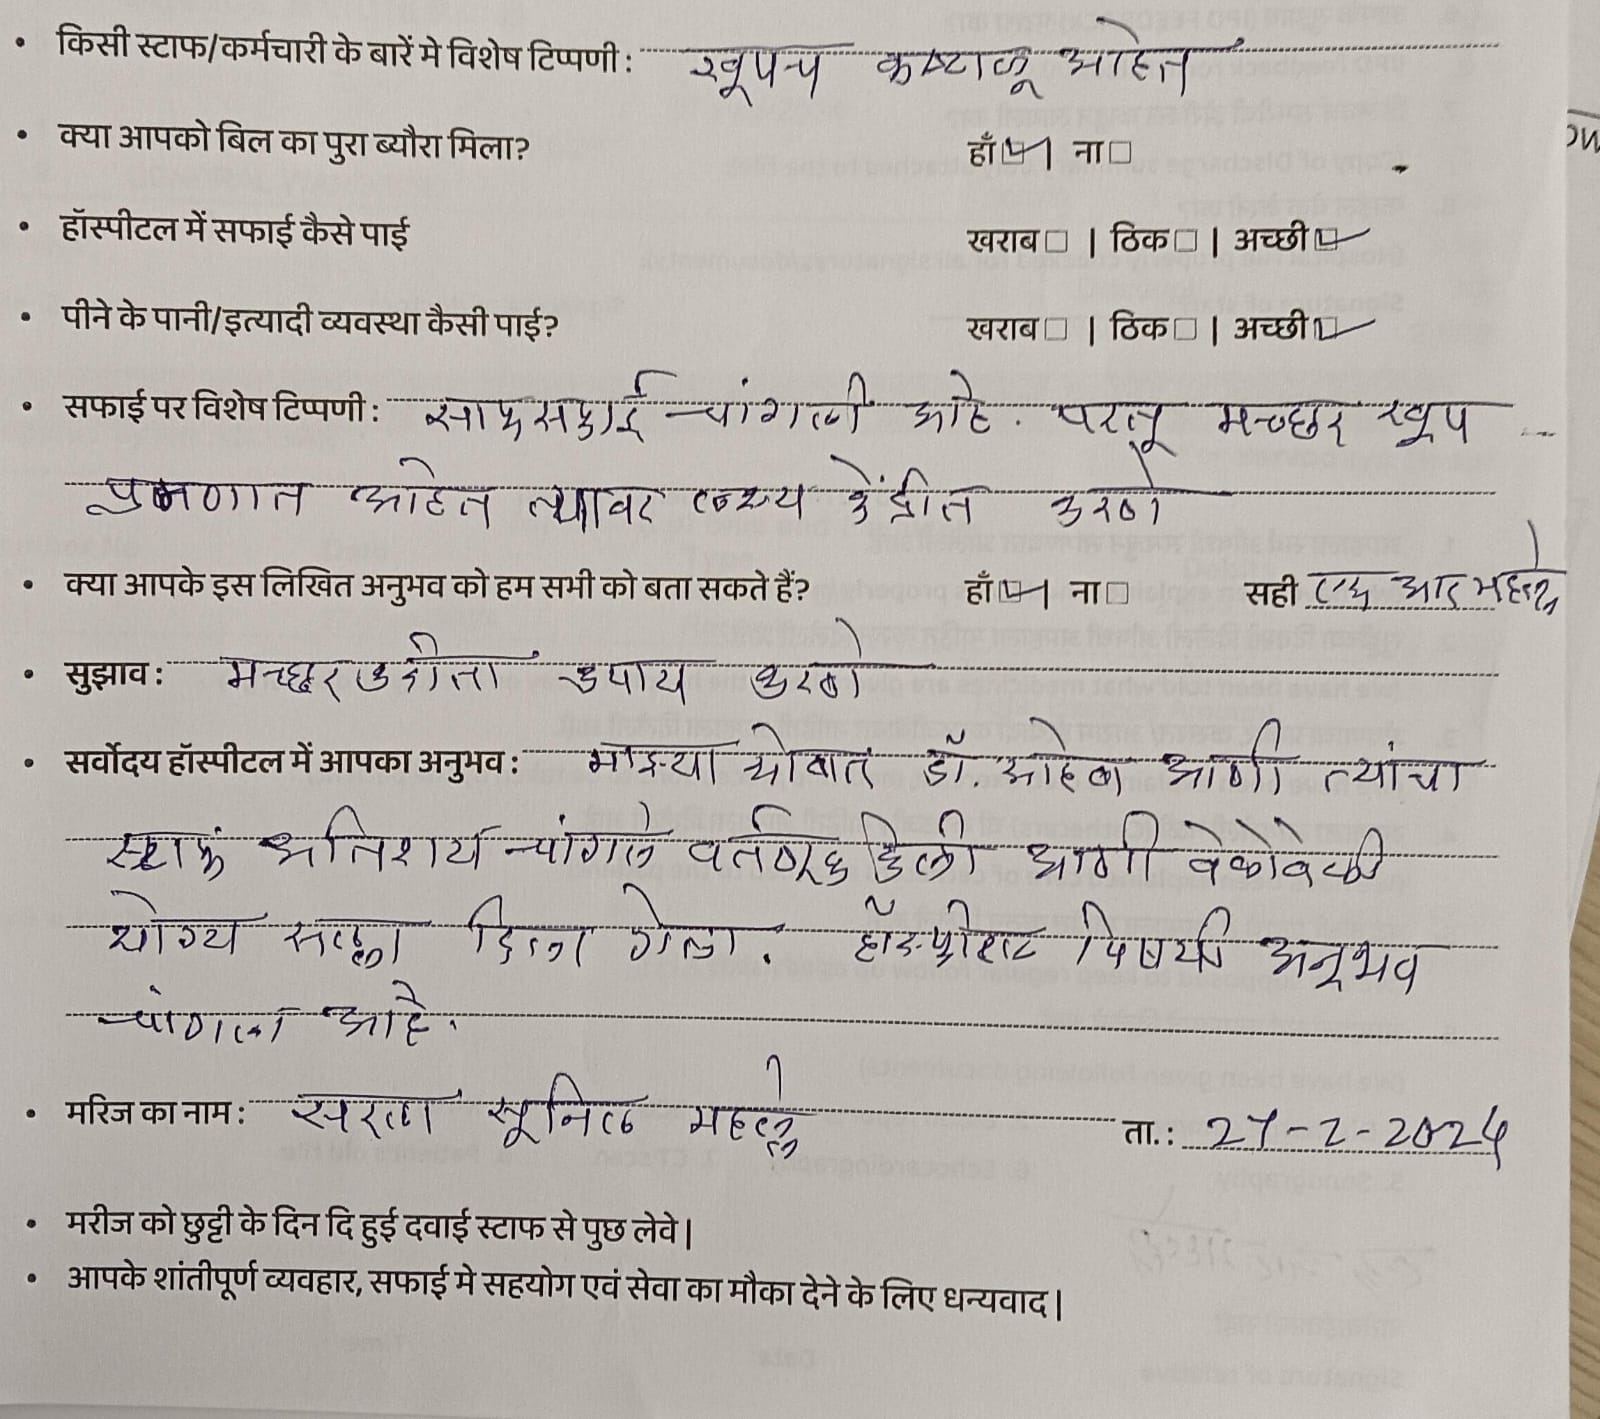 • किसी स्टाफ/कर्मचारी के बारें मे विशेष टिप्पणी : खूपच कष्टाळू आहेत
• क्या आपको बिल का पुरा ब्यौरा मिला? हाँ☑ | ना□
• हॉस्पीटल में सफाई कैसे पाई खराब□ | ठिक□ | अच्छी☑
• पीने के पानी/इत्यादी व्यवस्था कैसी पाई? खराब□ | ठिक□ | अच्छी☑
• सफाई पर विशेष टिप्पणी : साफसफाई चांगली आहे. परतू मच्छर खूप
आहेत त्यावर लक्ष्य केंद्रीत करणे
• क्या आपके इस लिखित अनुभव को हम सभी को बता सकते हैं? हाँ☑ | ना□ सही एस आर
• सुझाव : मच्छर करीता उपाय करणे
• सर्वोदय हॉस्पीटल में आपका अनुभव : माझ्या डॉ. आणी त्यांचा
स्टाफ अतिशय चांगले वर्तणूक दिली आणी वेळोवेळी
योग्य सल्ला दिला गेला. हॉस्पीटल विषयी अनूभव
चांगला आहे.
• मरिज का नाम : सरला सूनिल ता.: 27-2-2024
• मरीज को छुट्टी के दिन दि हुई दवाई स्टाफ से पुछ लेवे |
• आपके शांतीपूर्ण व्यवहार, सफाई मे सहयोग एवं सेवा का मौका देने के लिए धन्यवाद |